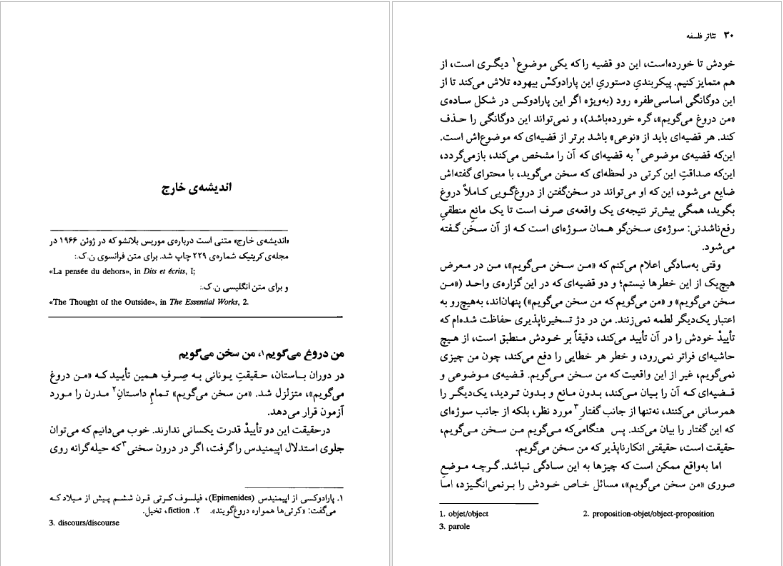 اندیشه‌ی خارج
«اندیشه‌ی خارج» متنی است درباره‌ی موریس بلانشو که در ژوئن ۱۹۶۶ در
مجله‌ی کریتیک شماره‌ی ۲۲۹ چاپ شد. برای متن فرانسوی ن.ک.:
«La pensée du dehors», in Dits et écrits, I;
و برای متن انگلیسی ن.ک.:
«The Thought of the Outside», in The Essential Works, 2.
من دروغ می‌گویم۱، من سخن می‌گویم
در دوران باستان، حقیقتِ یونانی به صِرفِ همین تأیید که «من دروغ
می‌گویم»، متزلزل شد. «من سخن می‌گویم» تمامِ داستانِ۲ مدرن را مورد
آزمون قرار می‌دهد.
درحقیقت این دو تأییدْ قدرت یکسانی ندارند. خوب می‌دانیم که می‌توان
جلوی استدلال اپیمنیدس را گرفت، اگر در درون سخنی۳ که حیله‌گرانه روی
۱. پارادوکسی از اپیمنیدس (Epimenides)، فیلسوف کرتی قرن ششم پیش از میلاد که
می‌گفت: «کرتی‌ها همواره دروغ‌گویند». ۲. fiction، تخیل.
3. discours/discourse
۳۰ تئاتر فلسفه
خودش تا خورده‌است، این دو قضیه را که یکی موضوع۱ دیگری است، از
هم متمایز کنیم. پیکربندیِ دستوریِ این پارادوکسْ بیهوده تلاش می‌کند تا از
این دوگانگی اساسی طفره رود (به‌ویژه اگر این پارادوکس در شکل ساده‌ی
«من دروغ می‌گویم»، گره خورده‌باشد)، و نمی‌تواند این دوگانگی را حذف
کند. هر قضیه‌ای باید از «نوعی» باشد برتر از قضیه‌ای که موضوع‌اش است.
این‌که قضیه‌ی موضوعی۲ به قضیه‌ای که آن را مشخص می‌کند، بازمی‌گردد،
این‌که صداقتِ این کرتی در لحظه‌ای که سخن می‌گوید، با محتوای گفته‌اش
ضایع می‌شود، این که او می‌تواند در سخن‌گفتن از دروغ‌گویی کاملاً دروغ
بگوید، همگی بیش‌تر نتیجه‌ی یک واقعه‌ی صرف است تا یک مانعِ منطقیِ
رفع‌ناشدنی: سوژه‌ی سخن‌گو همان سوژه‌ای است که از آن سخن گفته
می‌شود.
وقتی به‌سادگی اعلام می‌کنم که «من سخن می‌گویم»، من در معرض
هیچ‌یک از این خطرها نیستم؛ و دو قضیه‌ای که در این گزاره‌ی واحد («من
سخن می‌گویم» و «من می‌گویم که من سخن می‌گویم») پنهان‌اند، به‌هیچ‌رو به
اعتبار یک‌دیگر لطمه نمی‌زنند. من در دژ تسخیرناپذیری حفاظت شده‌ام که
تأییدْ خودش را در آن تأیید می‌کند، دقیقاً بر خودش منطبق است، از هیچ
حاشیه‌ای فراتر نمی‌رود، و خطر هر خطایی را دفع می‌کند، چون من چیزی
نمی‌گویم، غیر از این واقعیت که من سخن می‌گویم. قضیه‌ی موضوعی و
قضیه‌ای که آن را بیان می‌کند، بدون مانع و بدون تردید، یک‌دیگر را
همرسانی می‌کنند، نه‌تنها از جانب گفتارِ۳ مورد نظر، بلکه از جانب سوژه‌ای
که این گفتار را بیان می‌کند. پس هنگامی‌که می‌گویم من سخن می‌گویم،
حقیقت است، حقیقتی انکارناپذیر که من سخن می‌گویم.
اما به‌واقع ممکن است که چیزها به این سادگی نباشد. گرچه موضعِ
صوریِ «من سخن می‌گویم»، مسائل خاص خودش را برنمی‌انگیزد، اما
1. objet/object
2. proposition-objet/object-proposition
3. parole